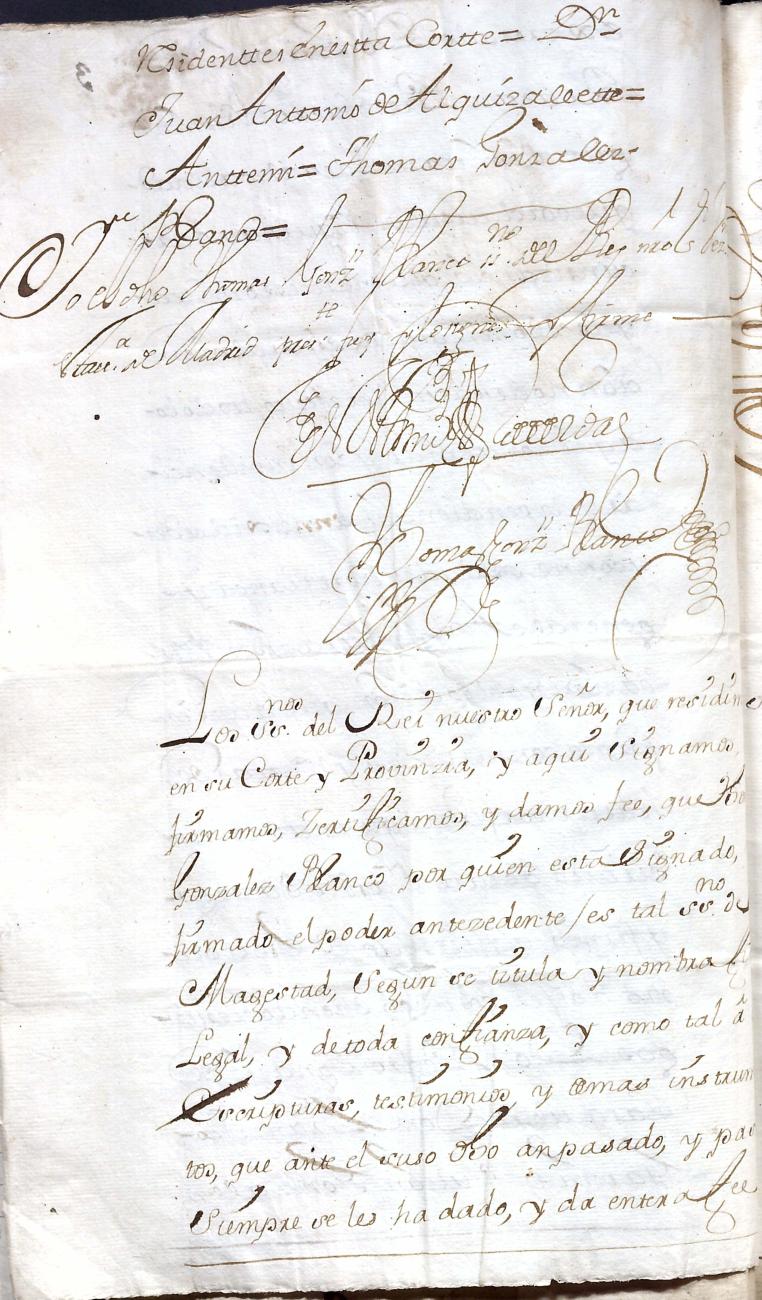 Residenttes enestta Cortte= Dn
Juan Anttonio de Alquizalette=
Anttemi= Thomas Gonzalez-
Blanco=
Yo el dho Thomas Gonz Blanco del Rei nro
de Madrid presте fui y firme
En testimo de verdad
Thomas Gonz Blanco
Los ssnos del Rei nuestro Señor, que residim
en su Corte y Provinzia, y aqui signamos,
firmamos, Zertificamos, y damos fee, que
Gonzalez Blanco por quien está signado,
firmado el poder antezedente / es tal ssno de
Magestad, segun se titula y nombra fi
Legal, y de toda confianza, y como tal á
Escripturas, testimonios, y demas instrum
tos, que ante el suso dho an pasado, y pa
siempre se les ha dado, y da entera fee